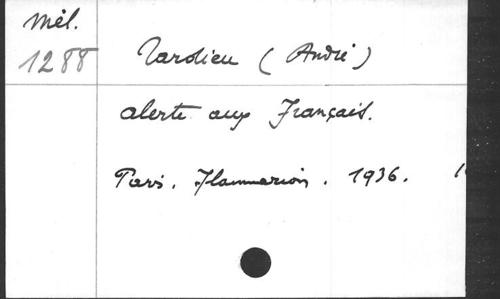 Mél.
1288
Tardieu (André)
alerte aux Français.
Paris. Flammarion. 1936.